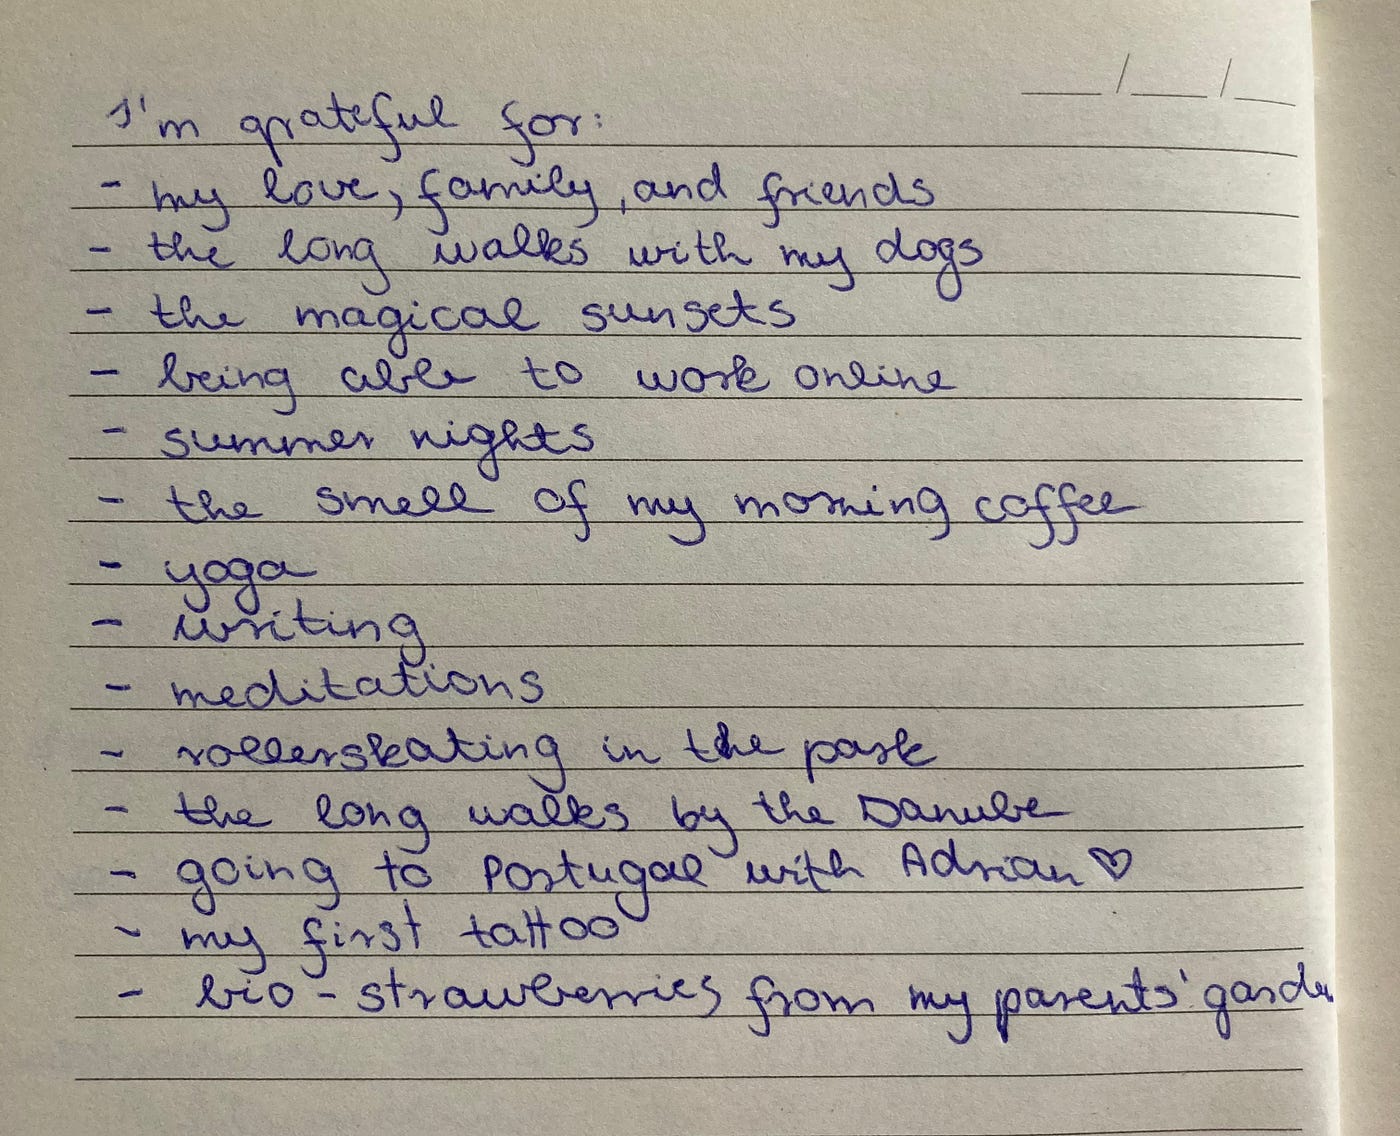 I'm grateful for:
- my love, family, and friends
- the long walks with my dogs
- the magical sunsets
- being able to work online
- summer nights
- the smell of my morning coffee
- yoga
- writing
- meditations
- rollerskating in the park
- the long walks by the Danube
- going to Portugal with Adrian ♡
- my first tattoo
- bio-strawberries from my parents' garden